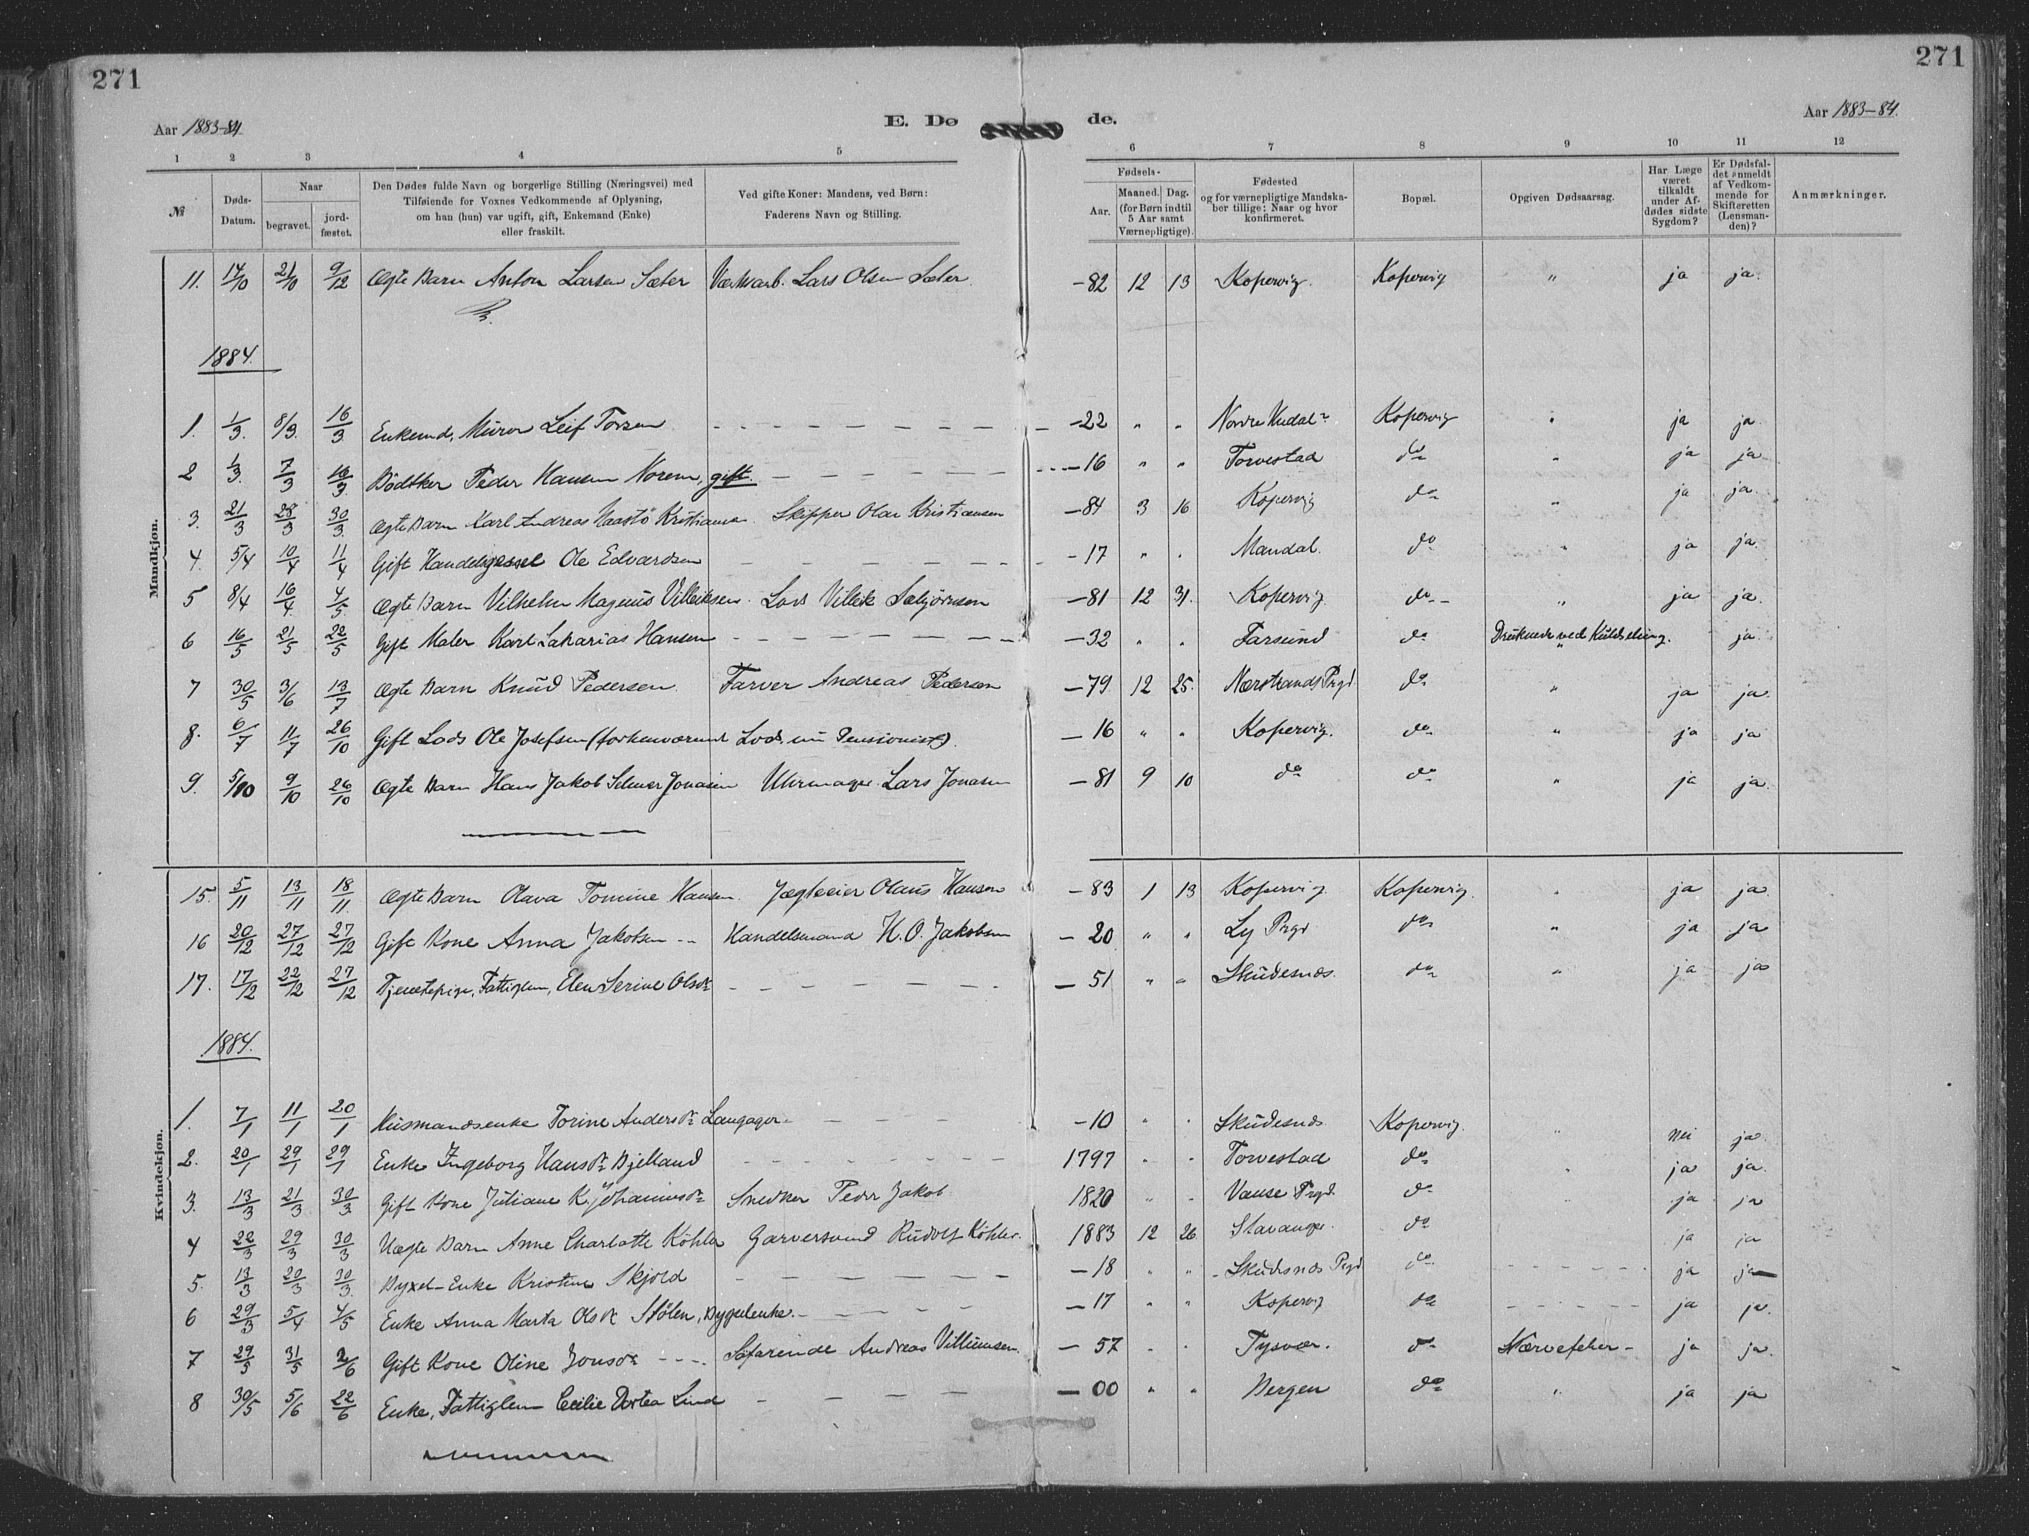 271
271
Aar 1883-84
E. Dø de.
Aar 1883-84.
1 2 3 4 5 6 7 8 9 10 11 12
№
Døds-Datum.
Naar
begravet.
jord-fæstet.
Den Dødes fulde Navn og borgerlige Stilling (Næringsvei) med
Tilføiende for Voxnes Vedkommende af Oplysning,
om han (hun) var ugift, gift, Enkemand (Enke)
eller fraskilt.
Ved gifte Koner: Mandens, ved Børn:
Faderens Navn og Stilling.
Fødsels-
Aar.
Maaned. Dag.
(for Børn indtil
5 Aar samt
Værnepligtige).
Fødested
og for værnepligtige Mandska-
ber tillige: Naar og hvor
konfirmeret.
Bopæl.
Opgiven Dødsaarsag.
Har Læge
været
tilkaldt
under Af-
dødes sidste
Sygdom?
Er Dødsfal-
det anmeldt
af Vedkom-
mende for
Skifteretten
(Lensman-
den)?
Anmærkninger.
Mandkjøn.
11. 14/10 21/10 9/12 Ægte Barn Anton Larsen Sæter Lars Olsen Sæter. -82 12 13 Kopervig. Kopervig " ja ja.
1884.
1. 1/3. 8/3. 16/3 Enkemd, Murer Leif Torsen - - - -22 " " Kopervig " ja ja.
2 1/3. 7/3 16/3 Bødtker Peder Hansen Norem, gift. - - - -16 " " Torvestad do " ja ja
3. 21/3 28/3 30/3. Ægte Barn Karl Andreas Naastø Kristiansen Skipper Olai Kristiansen -84 3 16 Kopervig do " ja ja.
4. 5/4 10/4 11/4 Gift Handelsgessel Ole Edvardsen - - - -17 " " Mandal. do " ja ja.
5 8/4 16/4. 4/5 Ægte Barn Vilhelm Magnus Villeiksen. Lods Villeik Sæbjørnsen -81 12 31. Kopervig do - " ja ja.
6 16/5 21/5 22/5 Gift Maler Karl Sakarias Hansen - - - -32 " " Farsund do Druknede ved Kuldseiling. " ja.
7 30/5 3/6 13/7 Ægte Barn Knud Pedersen. Farver Andreas Pedersen -79 12 25. Nærstrands Prgd do " ja ja.
8. 6/7 11/7 26/10 Gift Lods Ole Josefsen (forhenværende Lods, nu Pensionist). -16 " " Kopervig. do " ja ja
9. 5/10 9/10 26/10 Ægte Barn Hans Jakob Selmer Jonasen Uhrmager Lars Jonasen -81 9 10 do do " ja ja.
Kvindekjøn.
15. 5/11 13/11 18/11. Ægte Barn Olava Tomine Hansen. Jægteeier Olaus Hansen -83 1 13 Kopervig. Kopervig. " ja ja.
16 20/12 27/12 27/12 Gift Kone Anna Jakobsen -- Handelsmand H. O. Jakobsen -20 " " Ly Prgd do " ja ja
17. 17/12 22/12 27/12 Tjenestepige, Fattiglem, Elen Serine Olsdr - - - -51 " " Skudesnæs. do " ja ja
1884.
1. 7/1 11/1 20/1 Husmandsenke Torine Andersdr Langager - - - -10 " " Skudesnæs Kopervig. " nei ja.
2. 20/1 29/1 29/1 Enke Ingeborg Hansdr Bjelland - - - 1797 - - Torvestad do " ja ja.
3. 13/3 21/3 30/3 Gift Kone Juliane K. Johannesdr Snedker Peder Jakob 1820 " " Vanse Prgd. do " ja ja
4 22/3 29/3 30/3 Uægte Barn Anne Charlotte Köhler Garversvend Rudolf Köhler. 1883 12 26 Stavanger. do ja ja
5. 13/3 20/3 30/3. Byxel-Enke Kristine Skjold - - - -18 " " Skudesnæs Prgd do - - - ja ja
6 29/3 5/4 4/5 Enke Anna Marta Olsdr Stølen, Bygselenke. - - -17 " " Kopervig do - - - ja ja.
7 29/5 31/5 2/6 Gift Kone Oline Jonsdr - - - Søfarende Andreas Villumsen. -57 " " Tysvær. do Nervefeber - ja ja.
8 30/5 5/6 22/6 Enke, Fattiglem Cecilie Dortea Lind - - - -00 " " Bergen do " ja ja